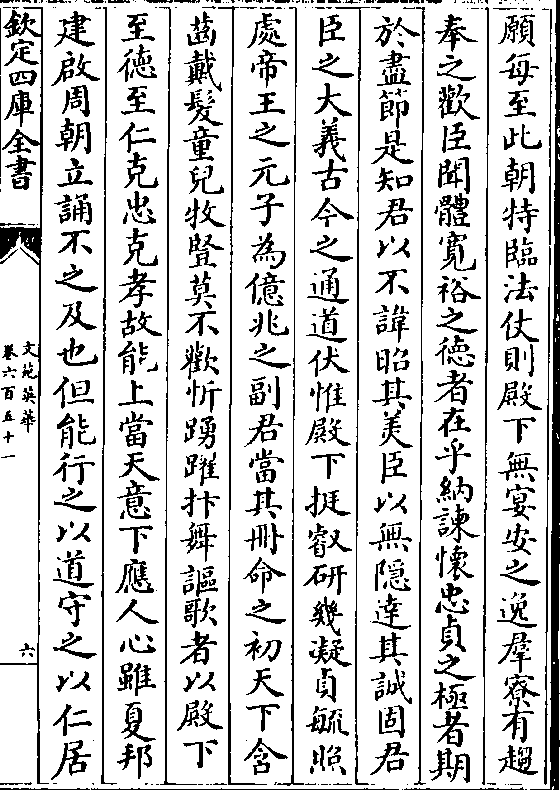 願每至此朝特臨法仗則殿下無宴安之逸羣寮有趨
奉之歡臣聞體寬裕之德者在乎納諫懷忠貞之極者期
於盡節是知君以不諱昭其美臣以無隱達其誠固君
臣之大義古今之通道伏惟殿下挺叡研幾凝貞毓照
處帝王之元子為億兆之副君當其冊命之初天下含
齒戴髮童兒牧豎莫不歡忻踴躍抃舞謳歌者以殿下
至德至仁克忠克孝故能上當天意下應人心雖夏邦
建啟周朝立誦不之及也但能行之以道守之以仁居
欽定四庫全書
文苑英華
卷六百五十一
六